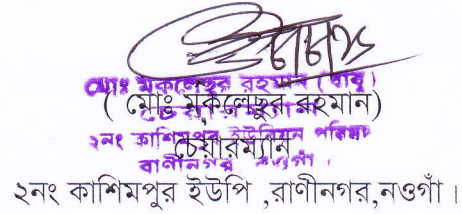 মোঃ মকলেছুর রহমান (বাবু)
( মোঃ মকলেছুর রহমান)
চেয়ারম্যান
২নং কাশিমপুর ইউনিয়ন পরিষদ
চেয়ারম্যান
রাণীনগর নওগাঁ।
২নং কাশিমপুর ইউপি ,রাণীনগর,নওগাঁ ।